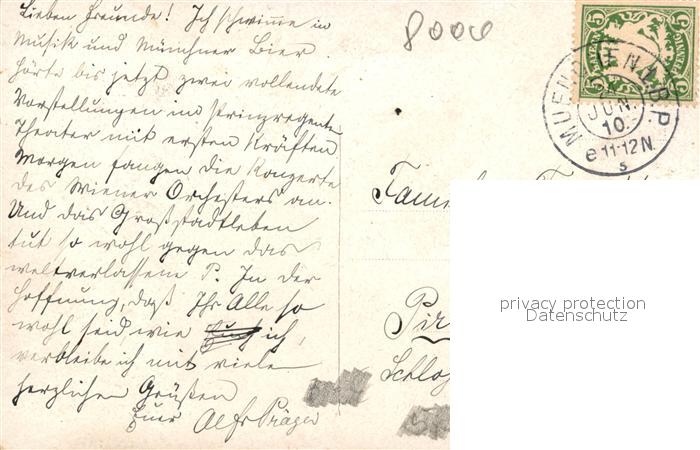 Lieben Freunde! Ich schwimme in
Musik und Münchner Bier
hörte bis jetzt zwei vollendete
Vorstellungen im Prinzregenten
Theater mit ersten Kräften
Morgen fangen die Konzerte
des Wiener Orchesters an.
Und das Großstadtleben
tut so wohl gegen das
weltverlassene P. In der
Hoffnung, daß Ihr Alle so
wohl seid wie ich,
verbleibe ich mit viele
herzlichen Grüßen
Euer Alfr Präger
8000
5 BAYERN 5
MUENCHEN B.P.
JUN.
10.
e 11-12 N.
s
Fam
Pir
Schlo
privacy protection
Datenschutz